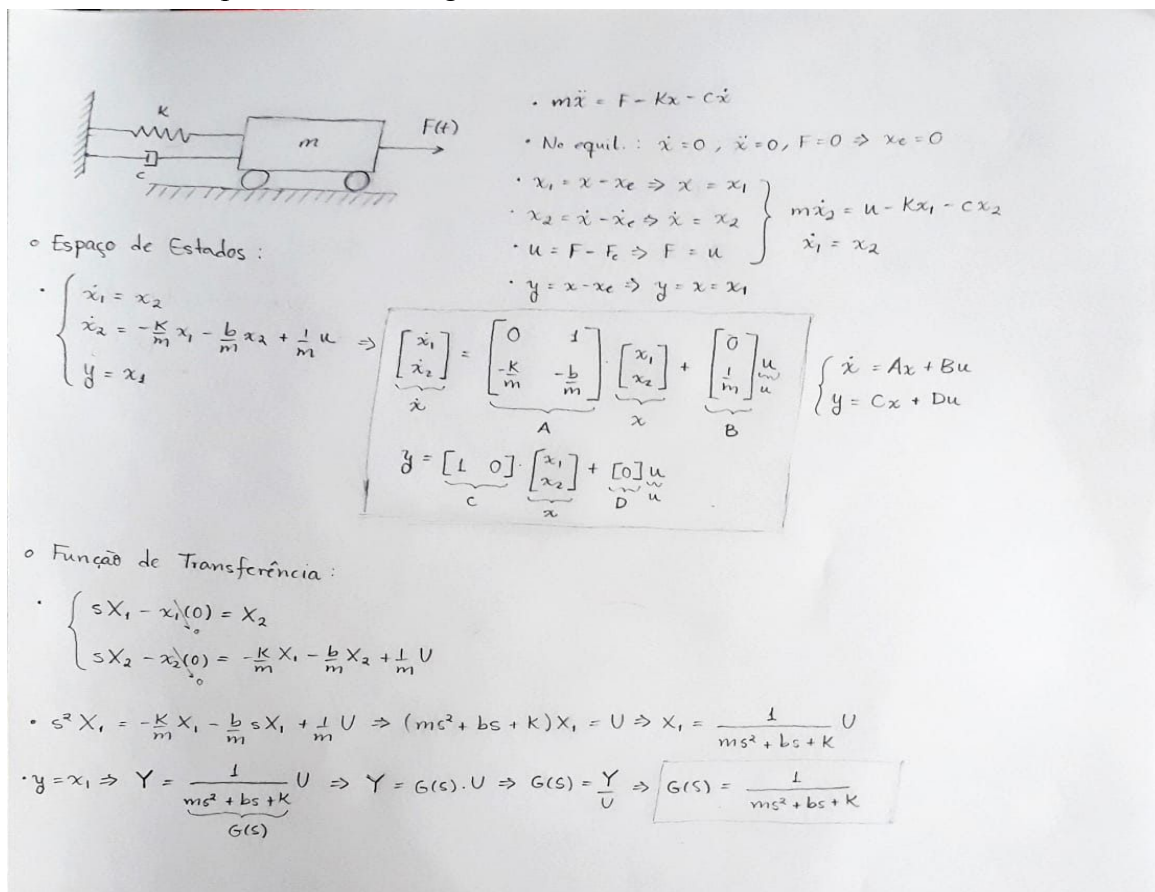 K
m
F(t)
c
• mẍ = F - Kx - cẋ
• No equil.: ẋ=0, ẍ=0, F=0 ⇒ xe=0
• x₁ = x - xe ⇒ x = x₁
• x₂ = ẋ - ẋe ⇒ ẋ = x₂
• u = F - Fe ⇒ F = u
mẋ₂ = u - Kx₁ - cx₂
ẋ₁ = x₂
• y = x - xe ⇒ y = x = x₁
o Espaço de Estados:
• { ẋ₁ = x₂
ẋ₂ = -K/m x₁ - b/m x₂ + 1/m u ⇒
y = x₁
[ẋ₁ ẋ₂] = [0 1 -K/m -b/m] · [x₁ x₂] + [0 1/m] u
ẋ A x B u
y = [1 0] · [x₁ x₂] + [0] u
C x D u
{ ẋ = Ax + Bu
y = Cx + Du
o Função de Transferência:
• { sX₁ - x₁(0) = X₂
0
sX₂ - x₂(0) = -K/m X₁ - b/m X₂ + 1/m U
0
• s²X₁ = -K/m X₁ - b/m sX₁ + 1/m U ⇒ (ms² + bs + K)X₁ = U ⇒ X₁ = 1/(ms² + bs + K) U
• y = x₁ ⇒ Y = 1/(ms² + bs + K) U ⇒ Y = G(s).U ⇒ G(s) = Y/U ⇒ G(s) = 1/(ms² + bs + K)
G(s)